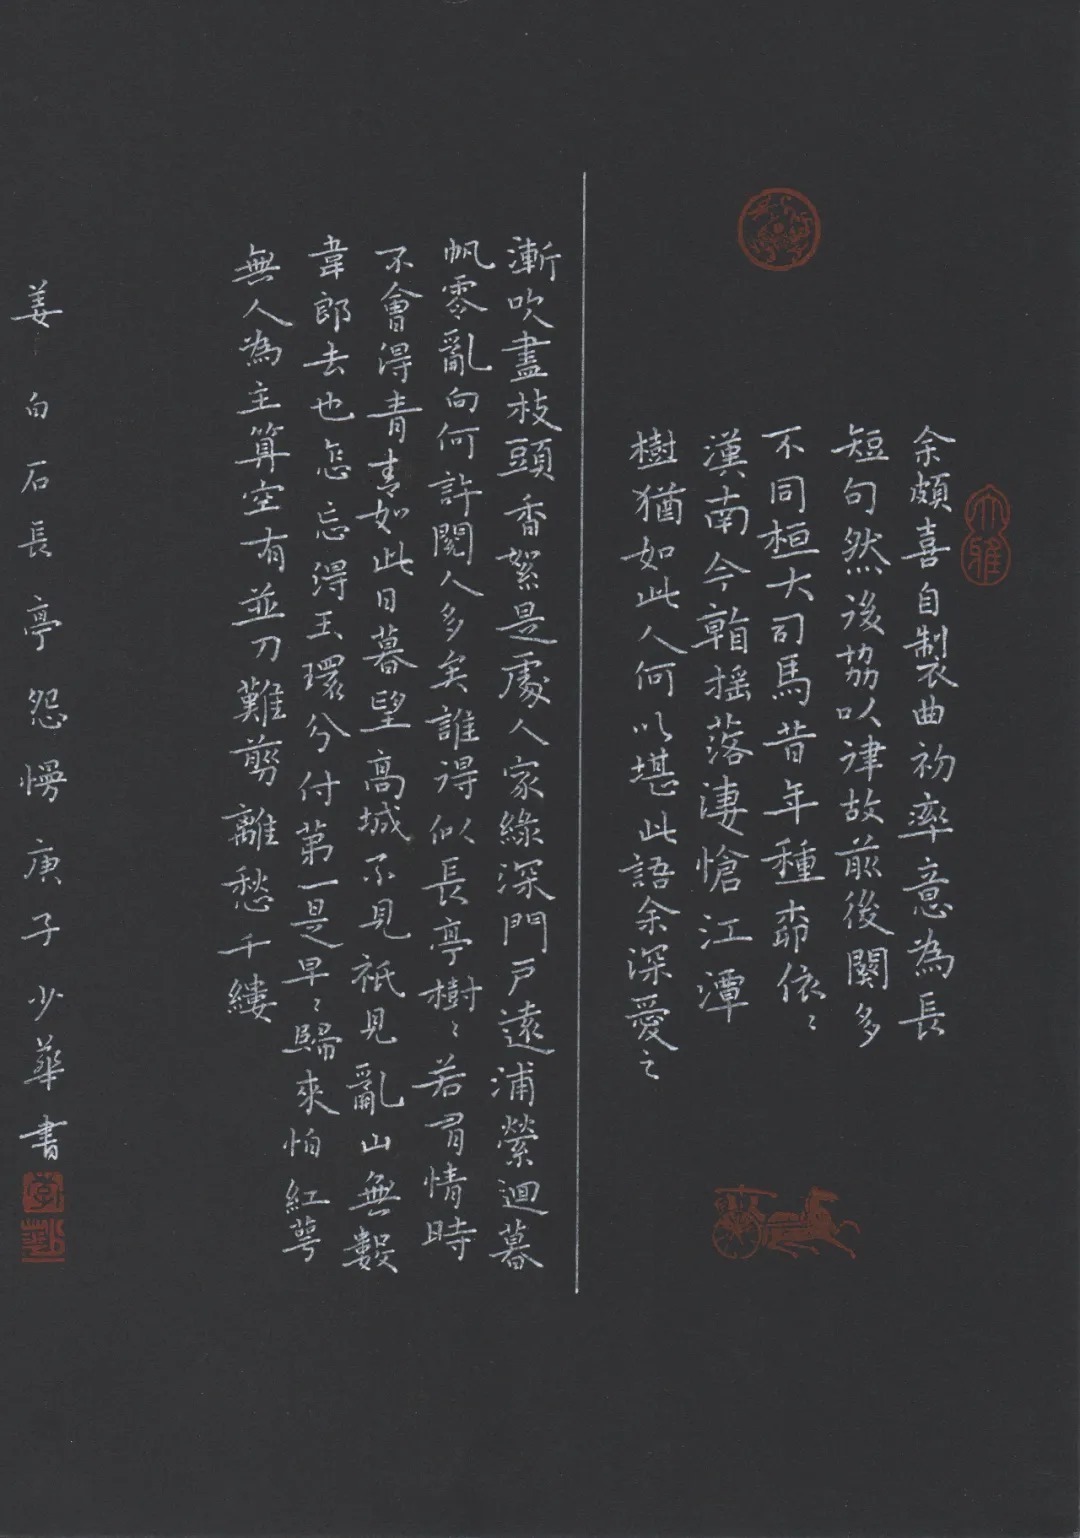 余頗喜自製曲初率意為長
短句然後協以律故前後闋多
不同桓大司馬昔年種桺依〻
漢南今看搖落淒愴江潭
樹猶如此人何以堪此語余深愛之
大雅
漸吹盡枝頭香絮是處人家綠深門戶遠浦縈迴暮
帆零亂向何許閱人多矣誰得似長亭樹〻若有情時
不會得青青如此日暮望高城不見祇見亂山無數
韋郎去也怎忘得玉環分付第一是早〻歸來怕紅萼
無人為主算空有並刀難剪離愁千縷
姜白石長亭怨慢庚子少華書